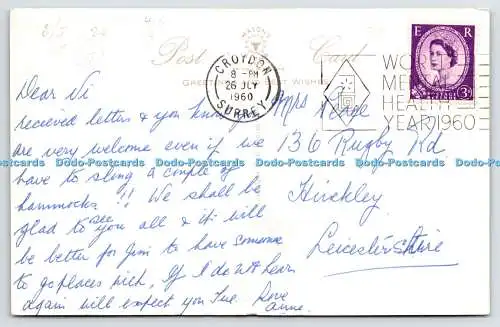 Post Card
MASON'S
GREETINGS
BEST WISHES
CROYDON
8-PM
26 JLY
1960
SURREY
WO
MEN
HEALTH
YEAR 1960
E R
3D
Dear Vi
recieved letters & you know
are very welcome even if we
have to sling a couple of
hammocks!! We shall be
glad to see you all & it will
be better for Jim to have someone
to go places with, If I do n't hear
again will expect you Tue. Love
Anne.
Mrs
136 Rugby Rd
Hinckley
Leicestershire
Dodo-Postcards Dodo-Postcards Dodo-Postcards Dodo-Postcards Dodo-Postcards Dodo-Postcards